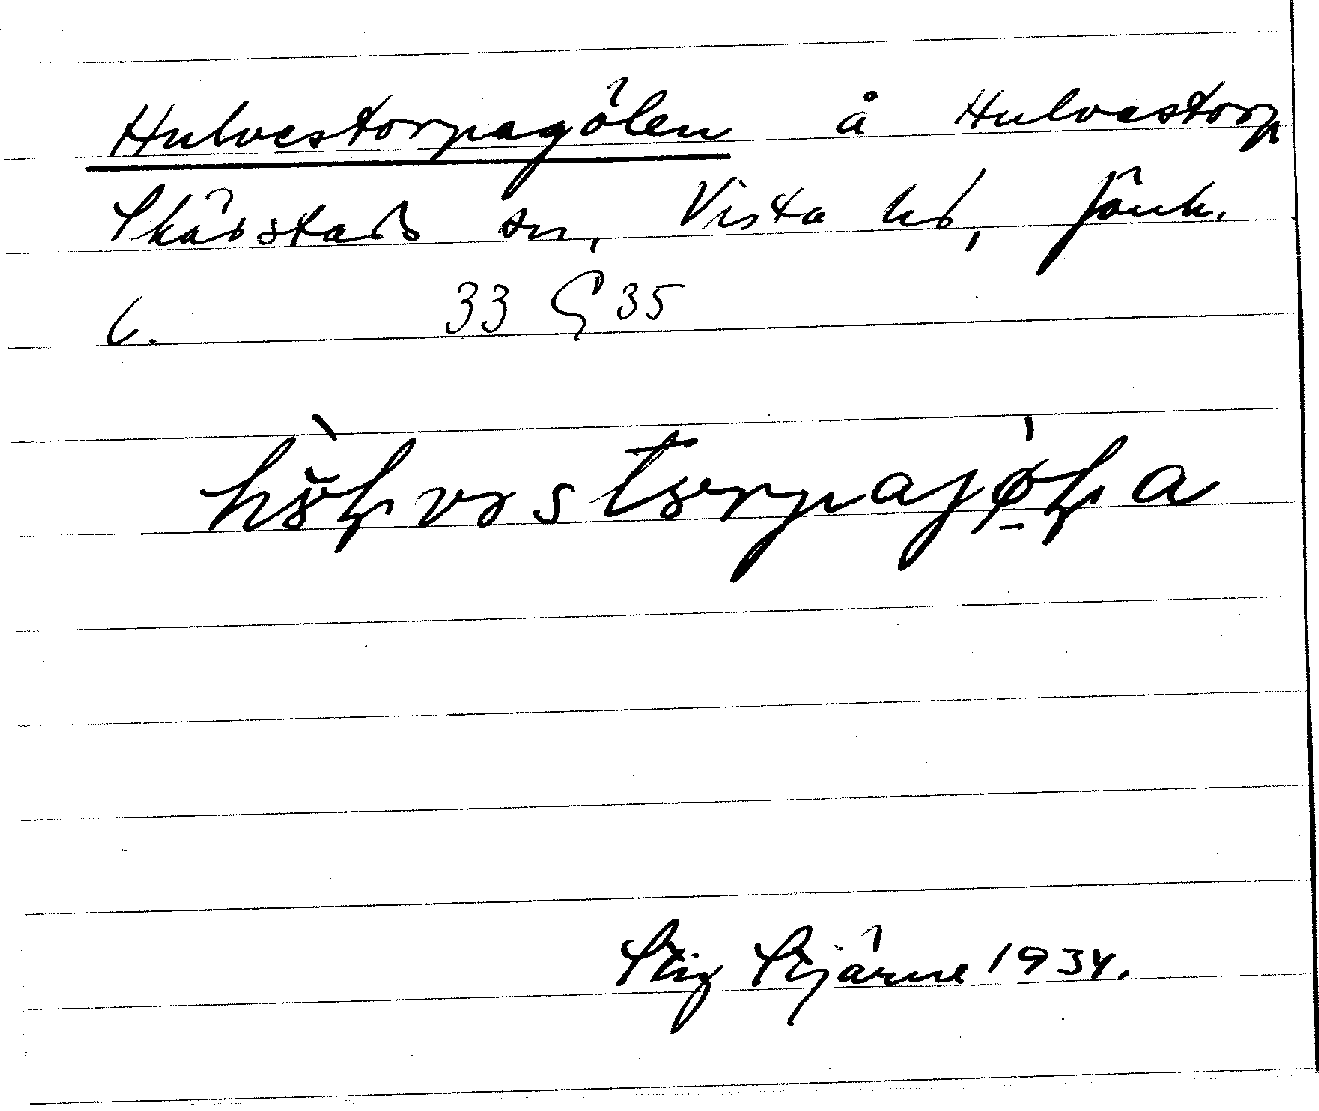 Hulvestorpagölen å Hulvestorp
Skärstads sn, Vista hd, Jönk.
l. 33 G 35
Stig Stjärne 1934.